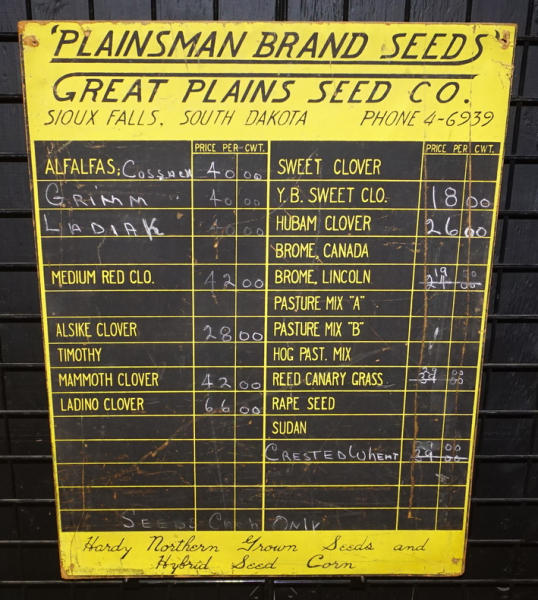 'PLAINSMAN BRAND SEEDS'
GREAT PLAINS SEED CO.
SIOUX FALLS, SOUTH DAKOTA PHONE 4-6939
PRICE PER CWT.
ALFALFAS: Cossack 40 00
GRIMM 40 00
LADIAK 40 00
MEDIUM RED CLO. 42 00
ALSIKE CLOVER 28 00
TIMOTHY
MAMMOTH CLOVER 42 00
LADINO CLOVER 66 00
PRICE PER CWT.
SWEET CLOVER
Y. B. SWEET CLO. 18 00
HUBAM CLOVER 26 00
BROME, CANADA
BROME, LINCOLN
PASTURE MIX "A"
PASTURE MIX "B"
HOG PAST. MIX
REED CANARY GRASS
RAPE SEED
SUDAN
CRESTED Wheat
SEEDS Cash ONLY
Hardy Northern Grown Seeds and
Hybrid Seed Corn